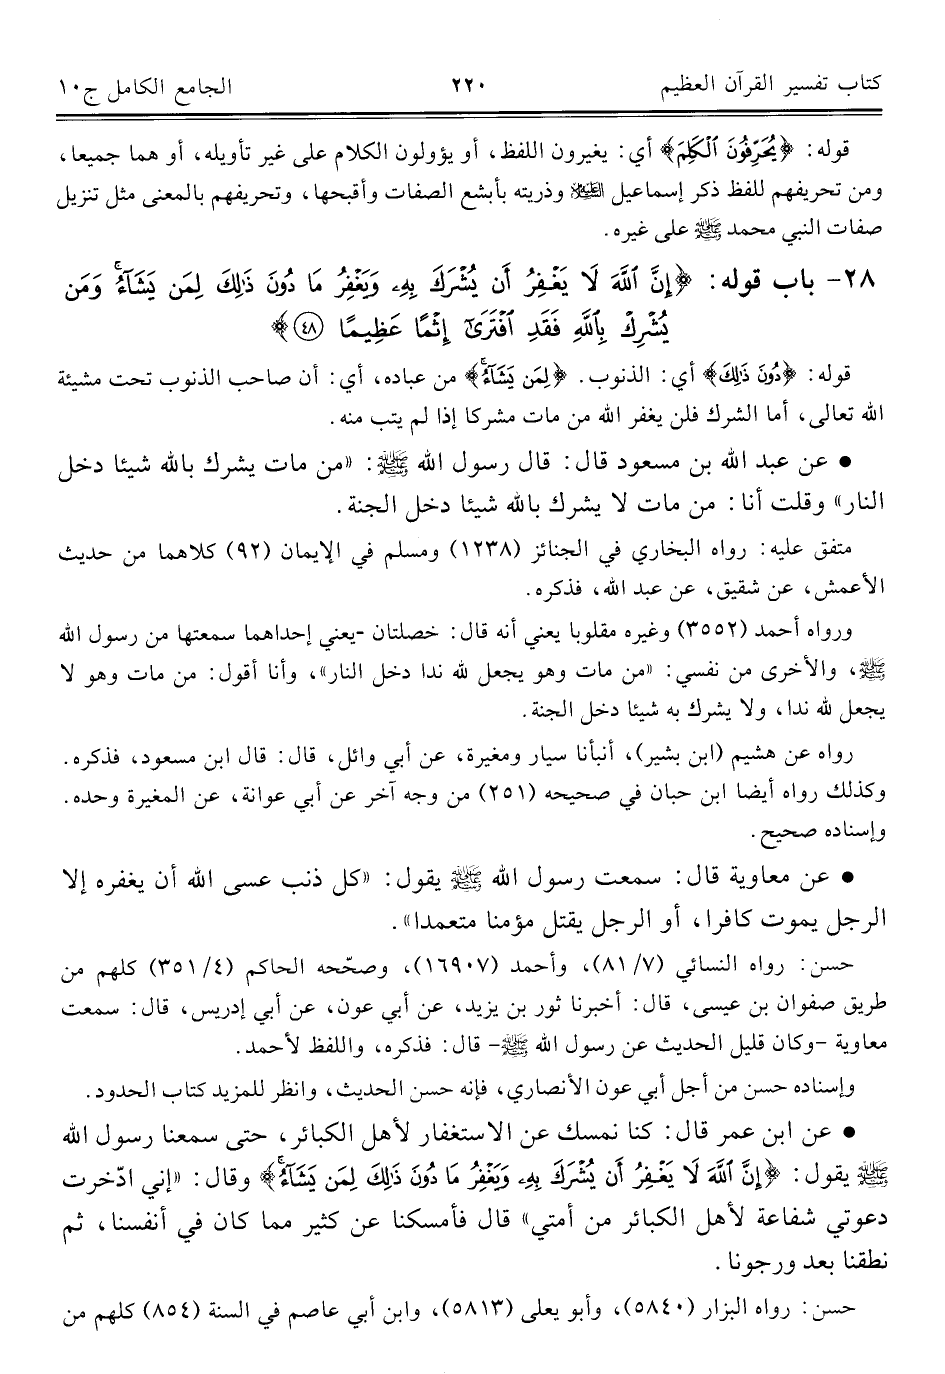 كتاب تفسير القرآن العظيم ٢٢٠ الجامع الكامل ج١٠
قوله: ﴿يُحَرِّفُونَ ٱلۡكَلِمَ﴾ أي: يغيرون اللفظ، أو يؤولون الكلام على غير تأويله، أو هما جميعا،
ومن تحريفهم للفظ ذكر إسماعيل عليه السلام وذريته بأبشع الصفات وأقبحها، وتحريفهم بالمعنى مثل تنزيل
صفات النبي محمد ﷺ على غيره.
٢٨- باب قوله: ﴿إِنَّ ٱللَّهَ لَا يَغۡفِرُ أَن يُشۡرَكَ بِهِۦ وَيَغۡفِرُ مَا دُونَ ذَٰلِكَ لِمَن يَشَآءُۚ وَمَن
يُشۡرِكۡ بِٱللَّهِ فَقَدِ ٱفۡتَرَىٰٓ إِثۡمًا عَظِيمًا ٤٨﴾
قوله: ﴿دُونَ ذَٰلِكَ﴾ أي: الذنوب. ﴿لِمَن يَشَآءُۚ﴾ من عباده، أي: أن صاحب الذنوب تحت مشيئة
الله تعالى، أما الشرك فلن يغفر الله من مات مشركا إذا لم يتب منه.
• عن عبد الله بن مسعود قال: قال رسول الله ﷺ: «من مات يشرك بالله شيئا دخل
النار» وقلت أنا: من مات لا يشرك بالله شيئا دخل الجنة.
متفق عليه: رواه البخاري في الجنائز (١٢٣٨) ومسلم في الإيمان (٩٢) كلاهما من حديث
الأعمش، عن شقيق، عن عبد الله، فذكره.
ورواه أحمد (٣٥٥٢) وغيره مقلوبا يعني أنه قال: خصلتان -يعني إحداهما سمعتها من رسول الله
ﷺ، والأخرى من نفسي: «من مات وهو يجعل لله ندا دخل النار»، وأنا أقول: من مات وهو لا
يجعل لله ندا، ولا يشرك به شيئا دخل الجنة.
رواه عن هشيم (ابن بشير)، أنبأنا سيار ومغيرة، عن أبي وائل، قال: قال ابن مسعود، فذكره.
وكذلك رواه أيضا ابن حبان في صحيحه (٢٥١) من وجه آخر عن أبي عوانة، عن المغيرة وحده.
وإسناده صحيح.
• عن معاوية قال: سمعت رسول الله ﷺ يقول: «كل ذنب عسى الله أن يغفره إلا
الرجل يموت كافرا، أو الرجل يقتل مؤمنا متعمدا».
حسن: رواه النسائي (٧/ ٨١)، وأحمد (١٦٩٠٧)، وصحّحه الحاكم (٤/ ٣٥١) كلهم من
طريق صفوان بن عيسى، قال: أخبرنا ثور بن يزيد، عن أبي عون، عن أبي إدريس، قال: سمعت
معاوية -وكان قليل الحديث عن رسول الله ﷺ- قال: فذكره، واللفظ لأحمد.
وإسناده حسن من أجل أبي عون الأنصاري، فإنه حسن الحديث، وانظر للمزيد كتاب الحدود.
• عن ابن عمر قال: كنا نمسك عن الاستغفار لأهل الكبائر، حتى سمعنا رسول الله
ﷺ يقول: ﴿إِنَّ ٱللَّهَ لَا يَغۡفِرُ أَن يُشۡرَكَ بِهِۦ وَيَغۡفِرُ مَا دُونَ ذَٰلِكَ لِمَن يَشَآءُۚ﴾ وقال: «إني ادّخرت
دعوتي شفاعة لأهل الكبائر من أمتي» قال فأمسكنا عن كثير مما كان في أنفسنا، ثم
نطقنا بعد ورجونا.
حسن: رواه البزار (٥٨٤٠)، وأبو يعلى (٥٨١٣)، وابن أبي عاصم في السنة (٨٥٤) كلهم من